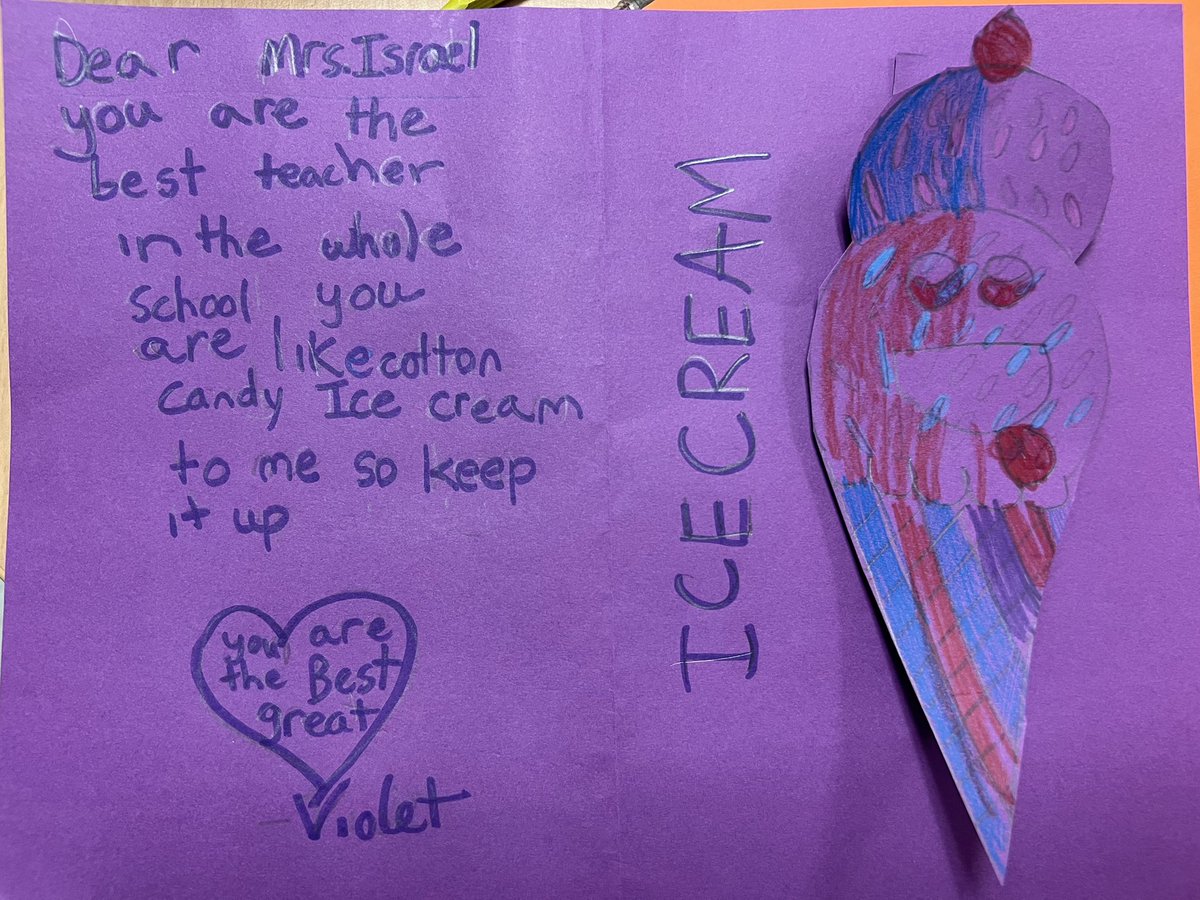 Dear Mrs.Israel
you are the
best teacher
in the whole
school you
are like cotton
candy Ice cream
to me so keep
it up
you are
the Best
great
Violet
ICECREAM